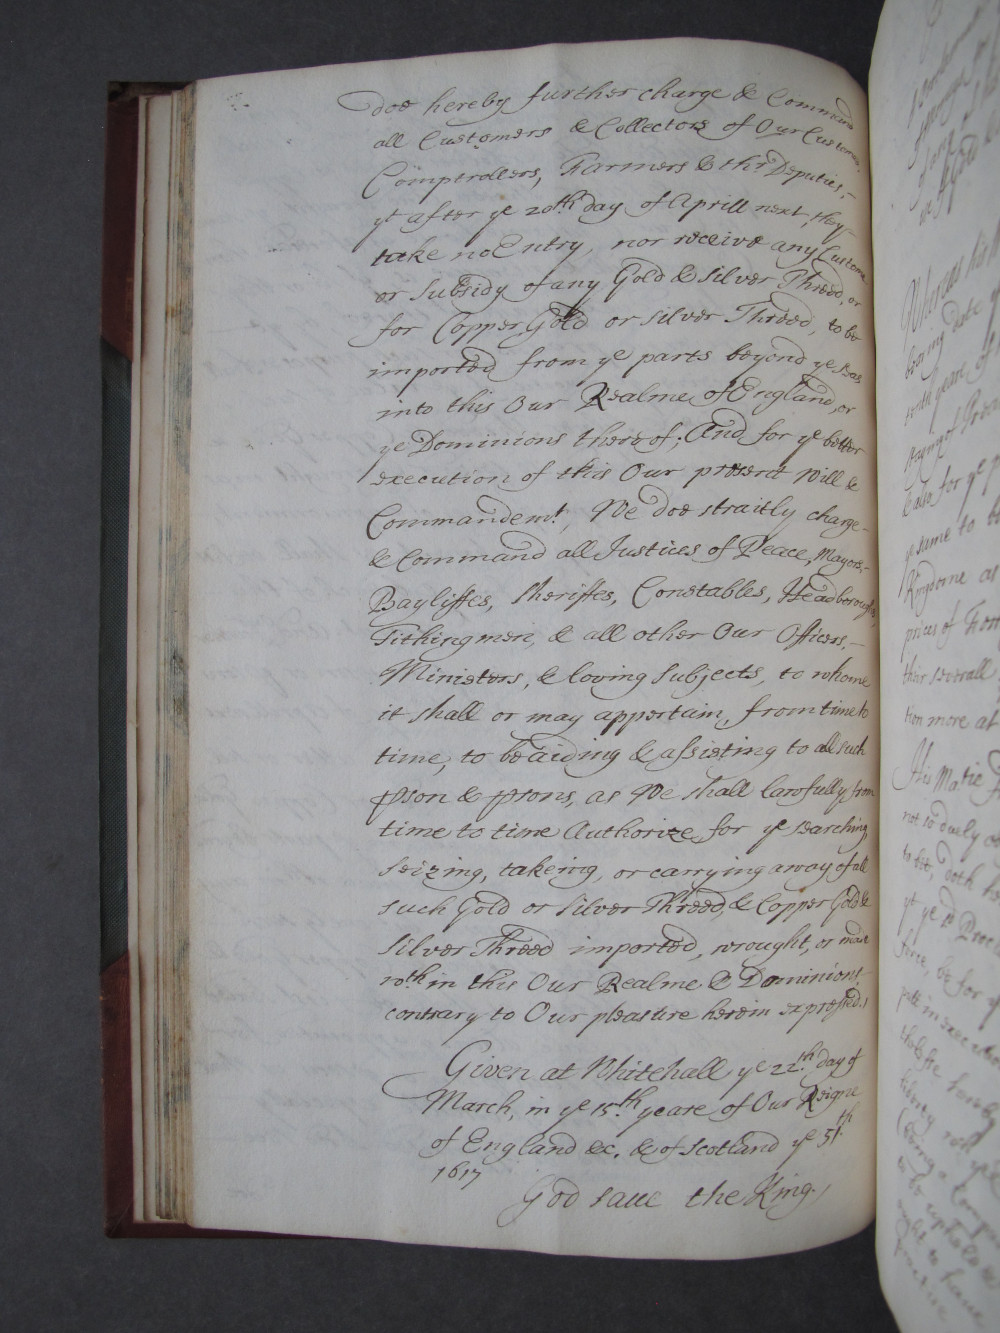 doe hereby further charge & Command
all Customers & Collectors of Our Customes,
Comptrollers, Farmers & thr Deputies,-
yt after ye 20th day of Aprill next, they
take no Entry, nor receive any Custome
or Subsidy of any Gold & Silver Threed, or
for Copper Gold or silver Threed, to be
imported from ye parts beyond ye Seas
into this Our Realme of England, or
ye Dominions thereof; And for ye better
execution of this Our present Will &
Commandemt, We doe straitly charge-
& Command all Justices of Peace, Mayors,-
Bayliffes, Sheriffes, Constables, Headboroughs,
Tithingmen, & all other Our Officers,-
Ministers, & loving Subjects, to whome
it shall or may appertain, from time to
time, to be aiding & assisting to all such
pson & psons, as We shall lawfully from
time to time Authorize, for ye searching,
seizing, takeing, or carrying away of all
such Gold or Silver Threed, & Copper Gold &
Silver Threed imported, wrought, or made
wth in this Our Realme & Dominions,
contrary to Our pleasure herein expressed.
Given at Whitehall ye 22th day of
March, in ye 15th yeare of Our Reigne
of England &c. & of Scotland ye 51th
1617
God save the King.
Whereas his
bearing date
Kingdome as
prices of
their severall
tion more at
His Matie
not so duly
yt ye sd Proc